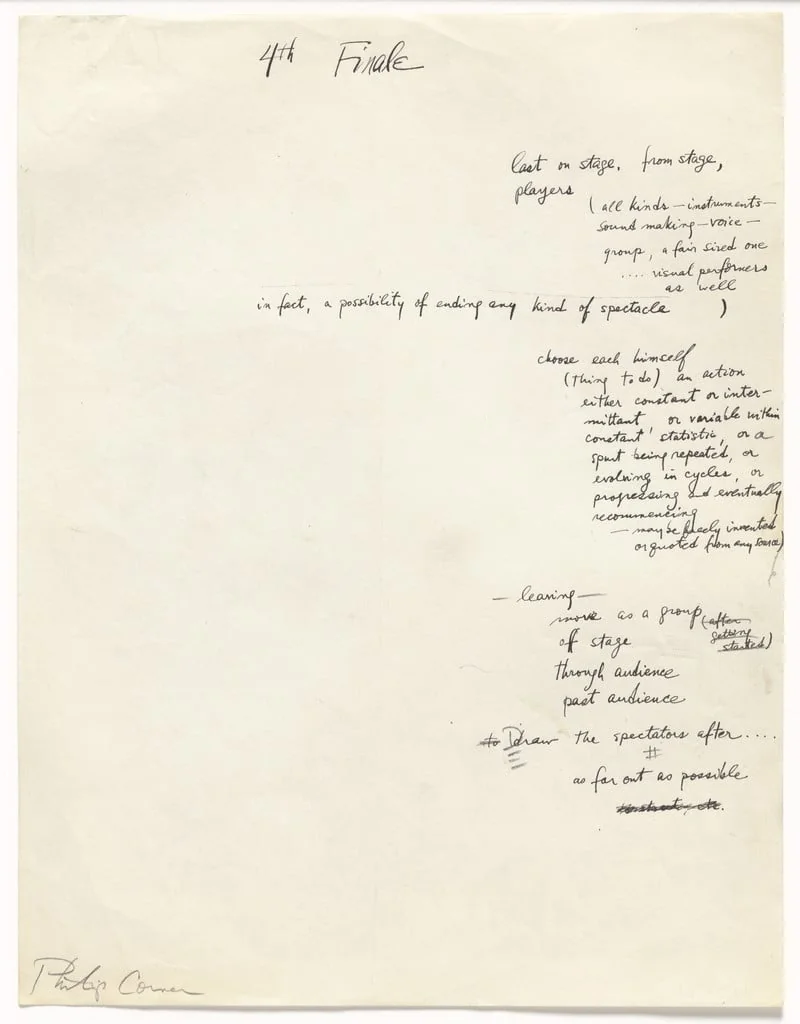 4th Finale
last on stage. from stage,
players
( all kinds — instruments —
sound making — voice —
group, a fair sized one
.... visual performers
as well
in fact, a possibility of ending any kind of spectacle )
choose each himself
(thing to do) an action
either constant or inter-
mittant, or variable within
constant statistic, or a
spurt being repeated, or
evolving in cycles, or
progressing and eventually
recommencing
— may be freely invented
or quoted from any source)
— leaving —
move as a group (after
getting
started)
off stage
through audience
past audience
to Draw the spectators after ....
#
as far out as possible
Philip Corner